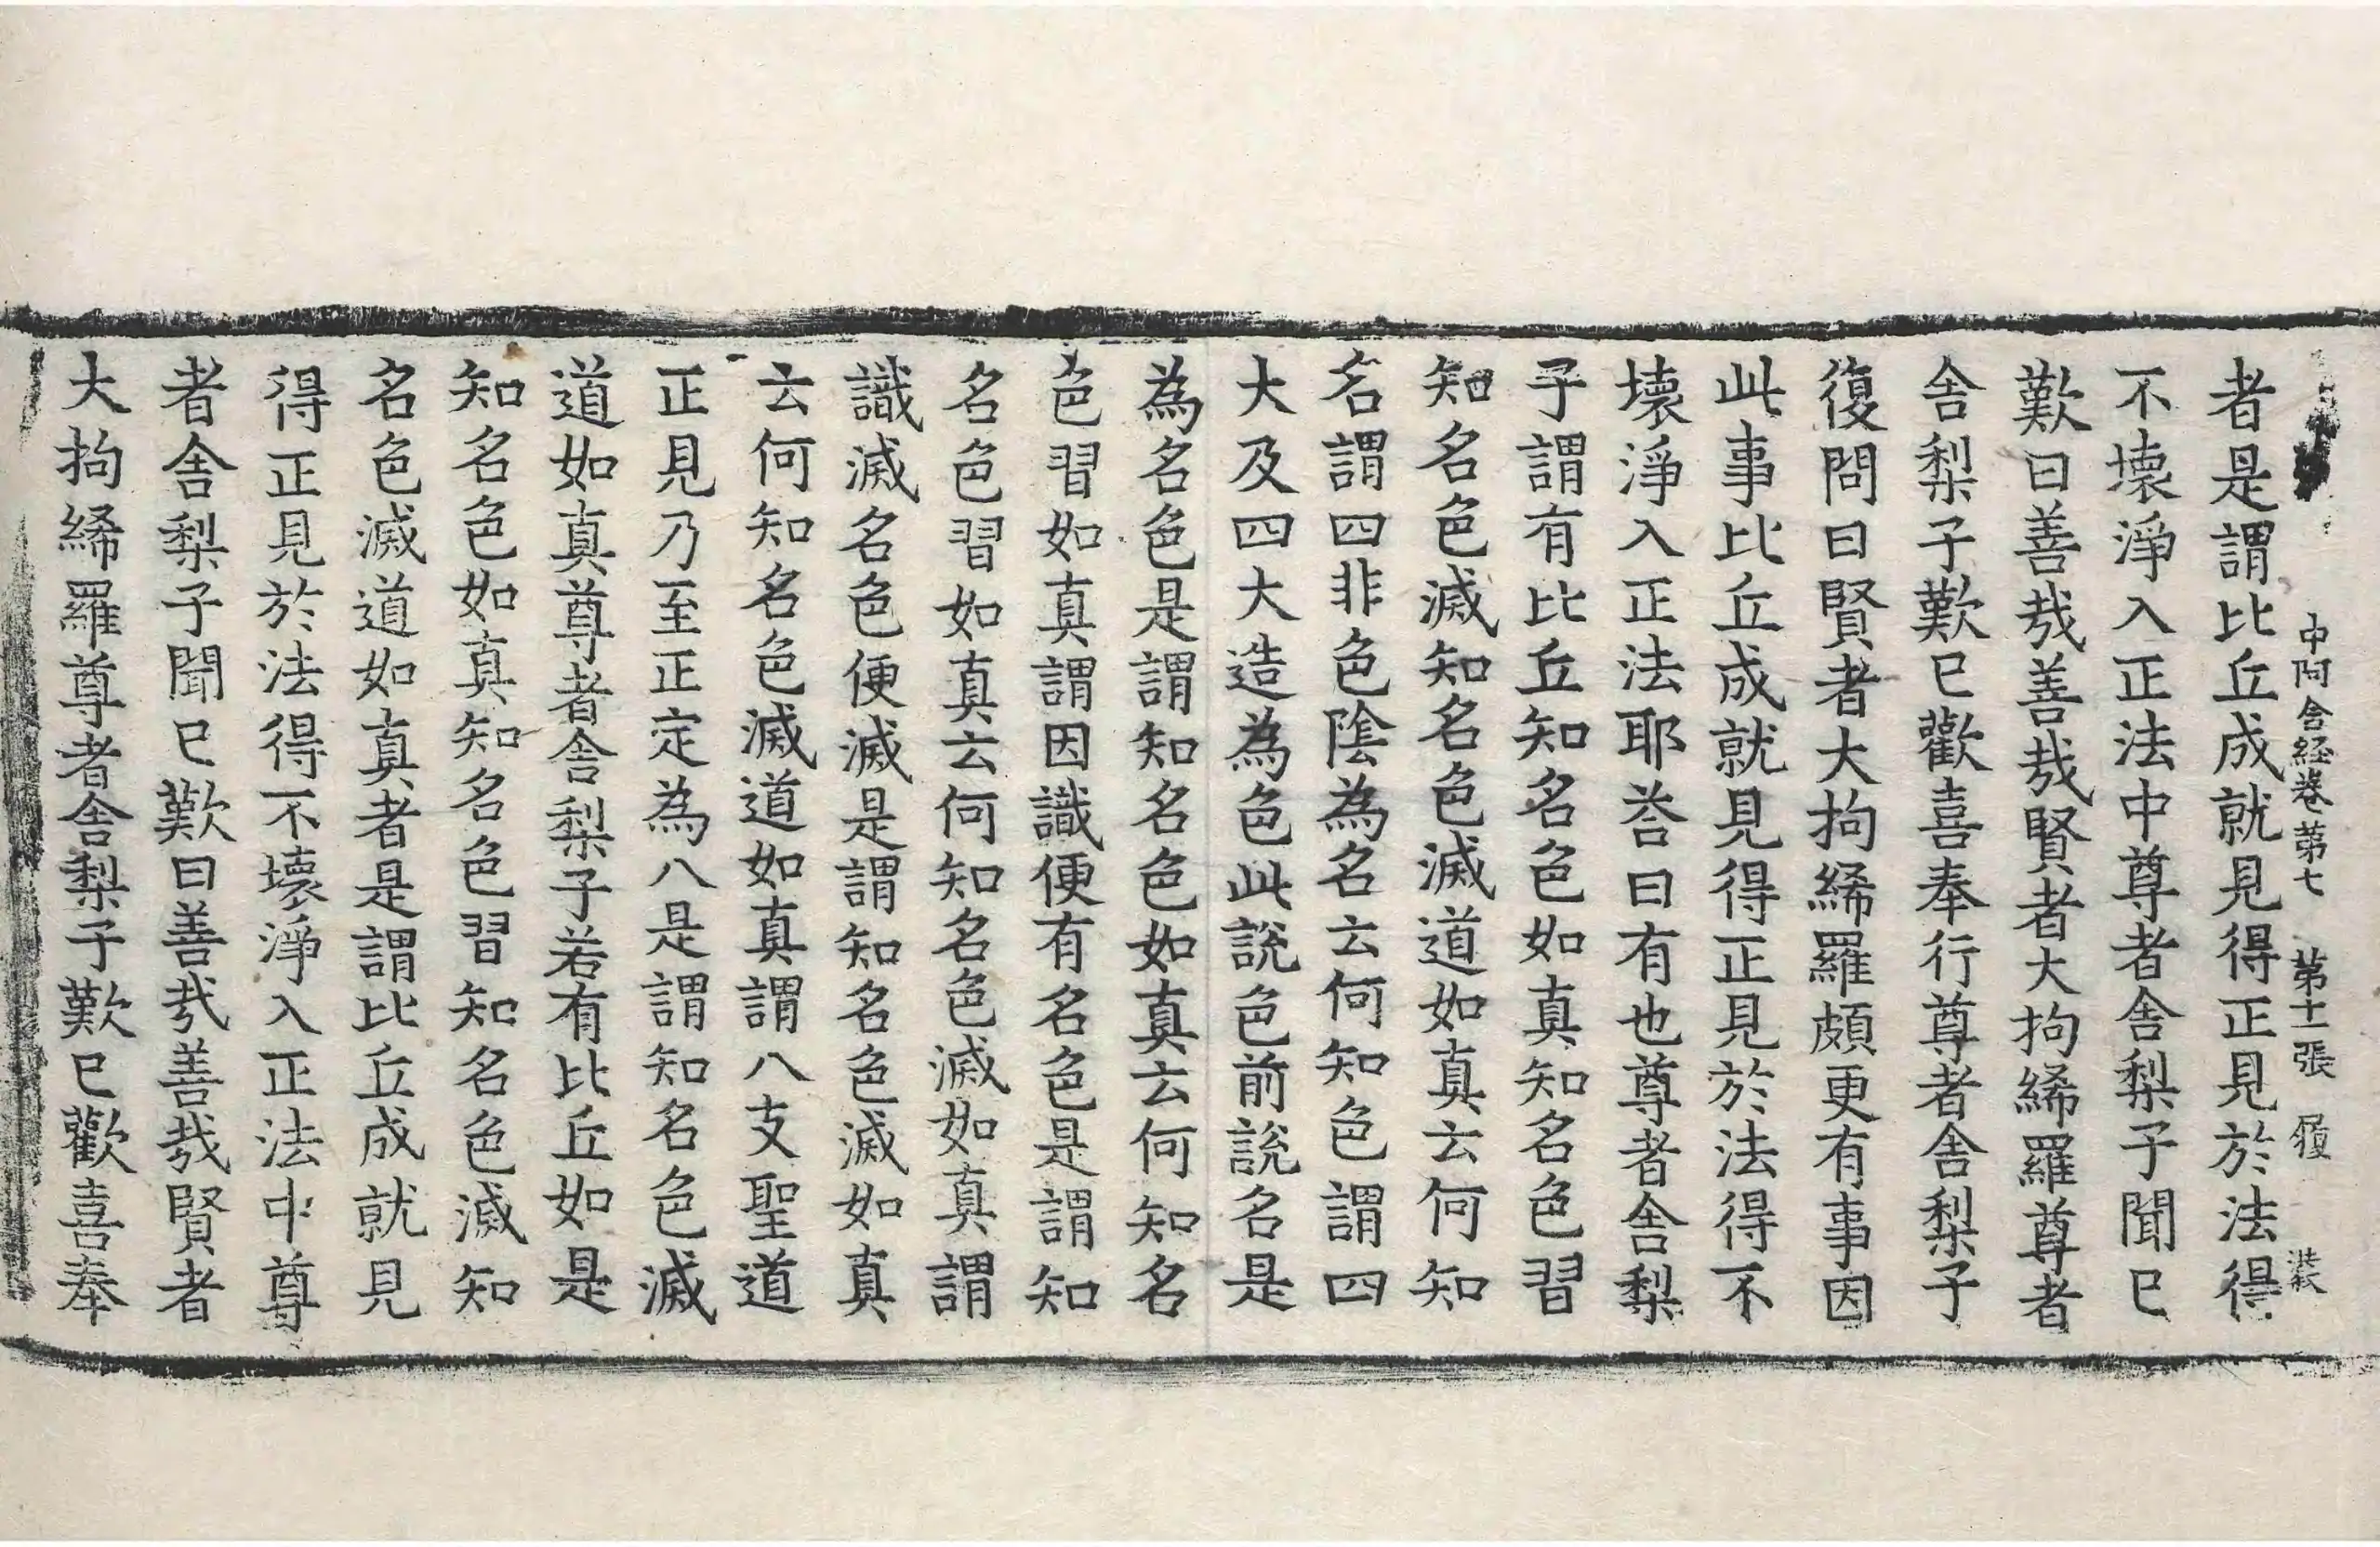 中阿含經卷第七 第十一張 履
者是謂比丘成就見得正見於法得
不壞淨入正法中尊者舍梨子聞已
歎曰善㢤善㢤賢者大拘絺羅尊者
舍梨子歎已歡喜奉行尊者舍梨子
復問曰賢者大拘絺羅頗更有事因
此事比丘成就見得正見於法得不
壞淨入正法耶荅曰有也尊者舍梨
子謂有比丘知名色如真知名色習
知名色滅知名色滅道如真云何知
名謂四非色陰為名云何知色謂四
大及四大造為色此說色前說名是
為名色是謂知名色如真云何知名
色習如真謂因識便有名色是謂知
名色習如真云何知名色滅如真謂
識滅名色便滅是謂知名色滅如真
云何知名色滅道如真謂八支聖道
正見乃至正定為八是謂知名色滅
道如真尊者舍梨子若有比丘如是
知名色如真知名色習知名色滅知
名色滅道如真者是謂比丘成就見
得正見於法得不壞淨入正法中尊
者舍梨子聞已歎曰善㢤善㢤賢者
大拘絺羅尊者舍梨子歎已歡喜奉